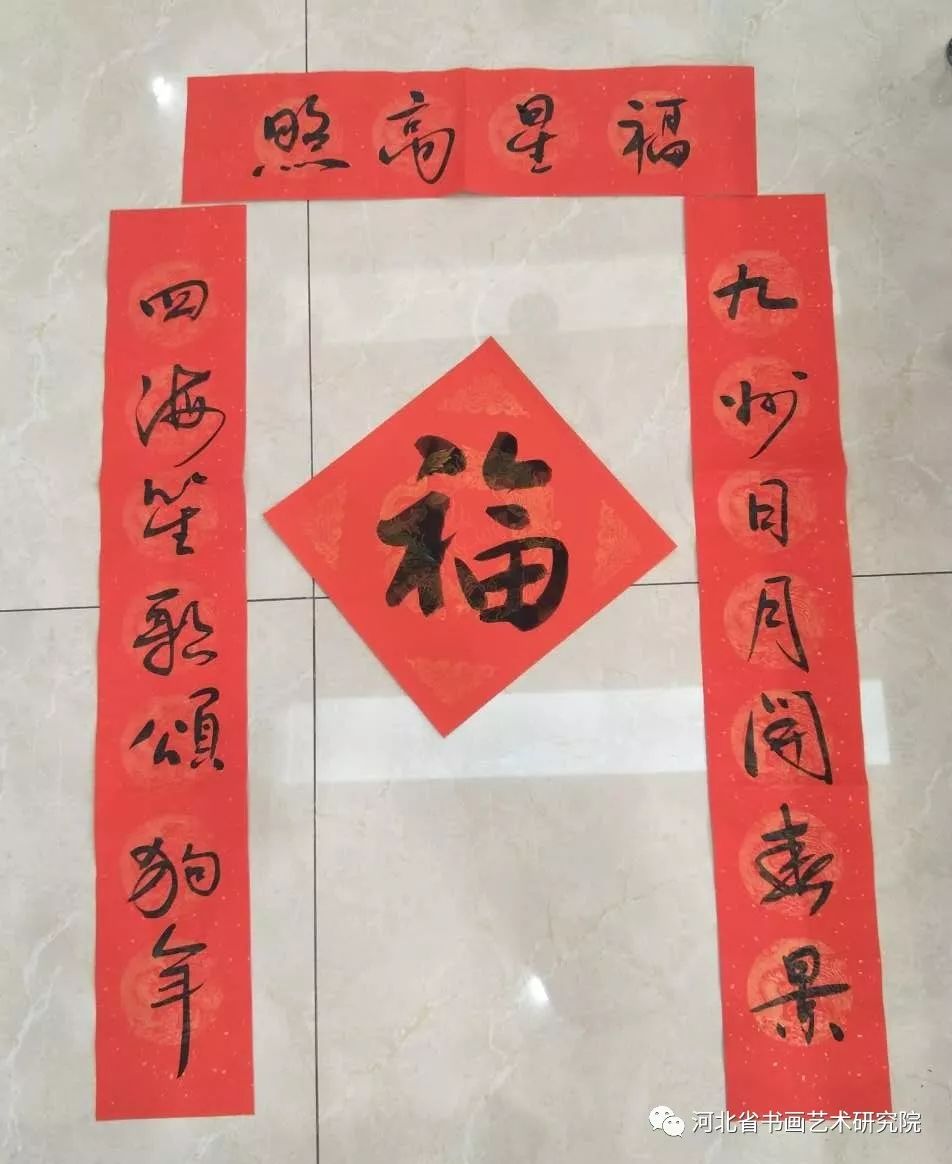 福星高照
九州日月開春景
四海笙歌頌狗年
福
河北省书画艺术研究院